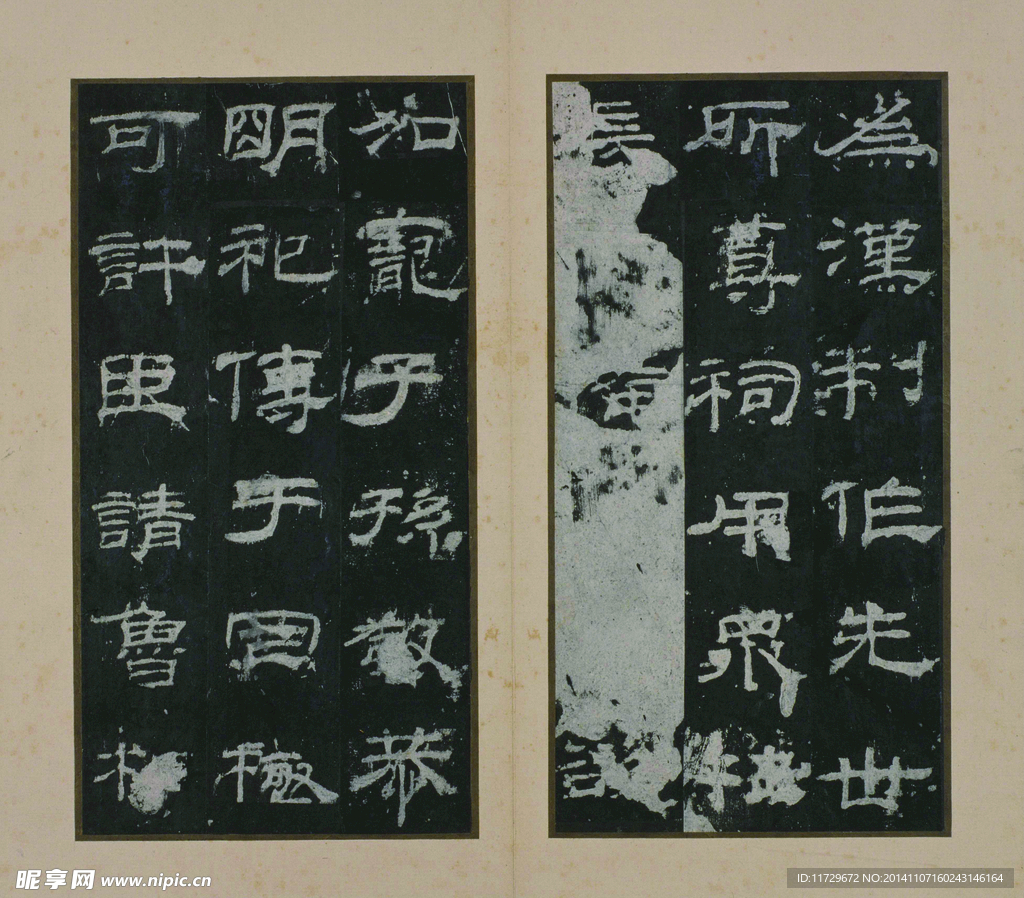 為漢制作先世
所尊祠用眾牲
長
加寵子孫敬恭
明祀傳于罔極
可許臣請魯相
昵享网 www.nipic.cn
ID:11729672 NO:20141107160243146164